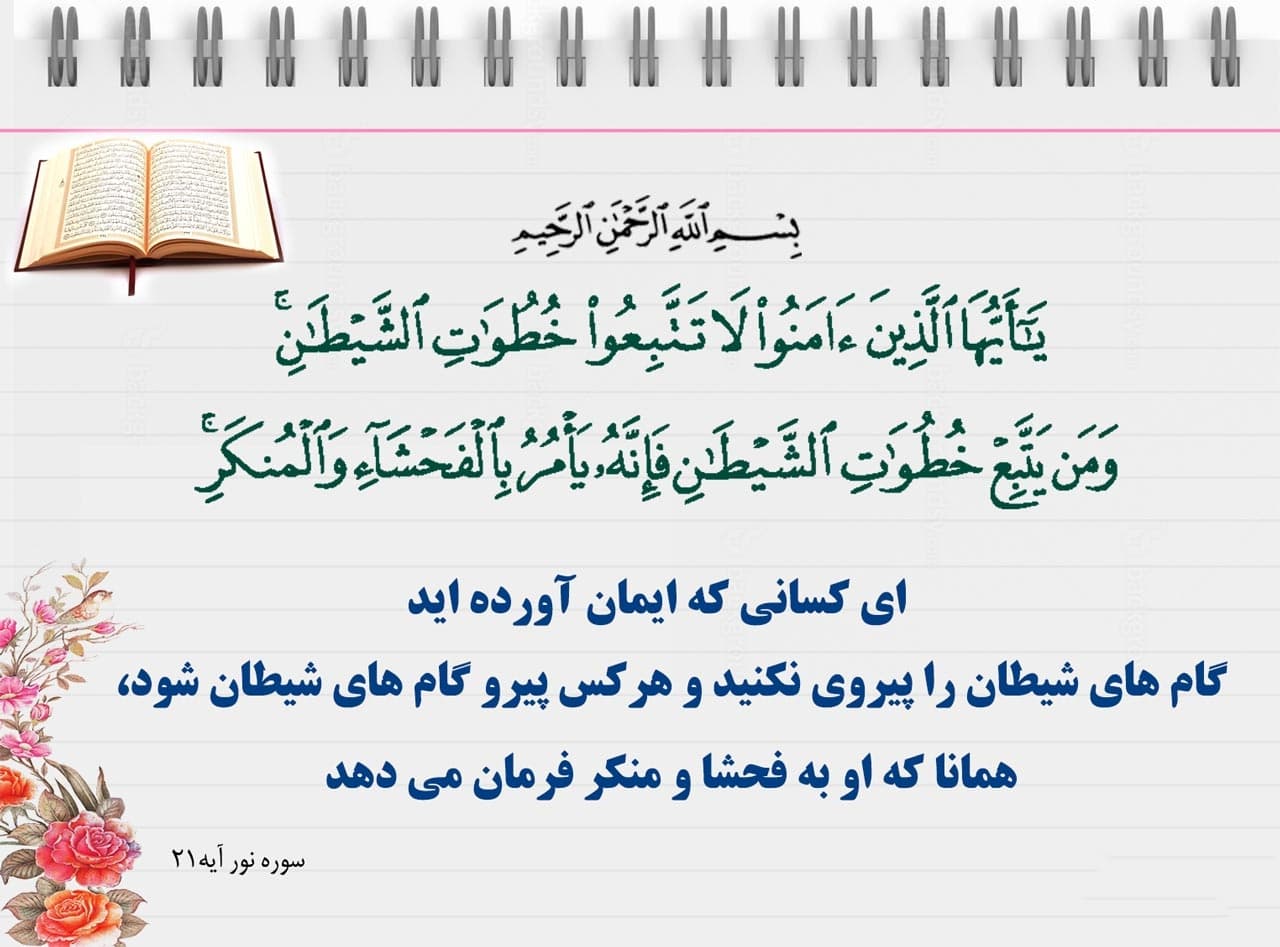 بِسْمِ ٱللَّهِ ٱلرَّحْمَٰنِ ٱلرَّحِيمِ
يَٰٓأَيُّهَا ٱلَّذِينَ ءَامَنُوا۟ لَا تَتَّبِعُوا۟ خُطُوَٰتِ ٱلشَّيْطَٰنِ ۚ
وَمَن يَتَّبِعْ خُطُوَٰتِ ٱلشَّيْطَٰنِ فَإِنَّهُۥ يَأْمُرُ بِٱلْفَحْشَآءِ وَٱلْمُنكَرِ ۚ
ای کسانی که ایمان آورده اید
گام های شیطان را پیروی نکنید و هرکس پیرو گام های شیطان شود،
همانا که او به فحشا و منکر فرمان می دهد
سوره نور آیه۲۱